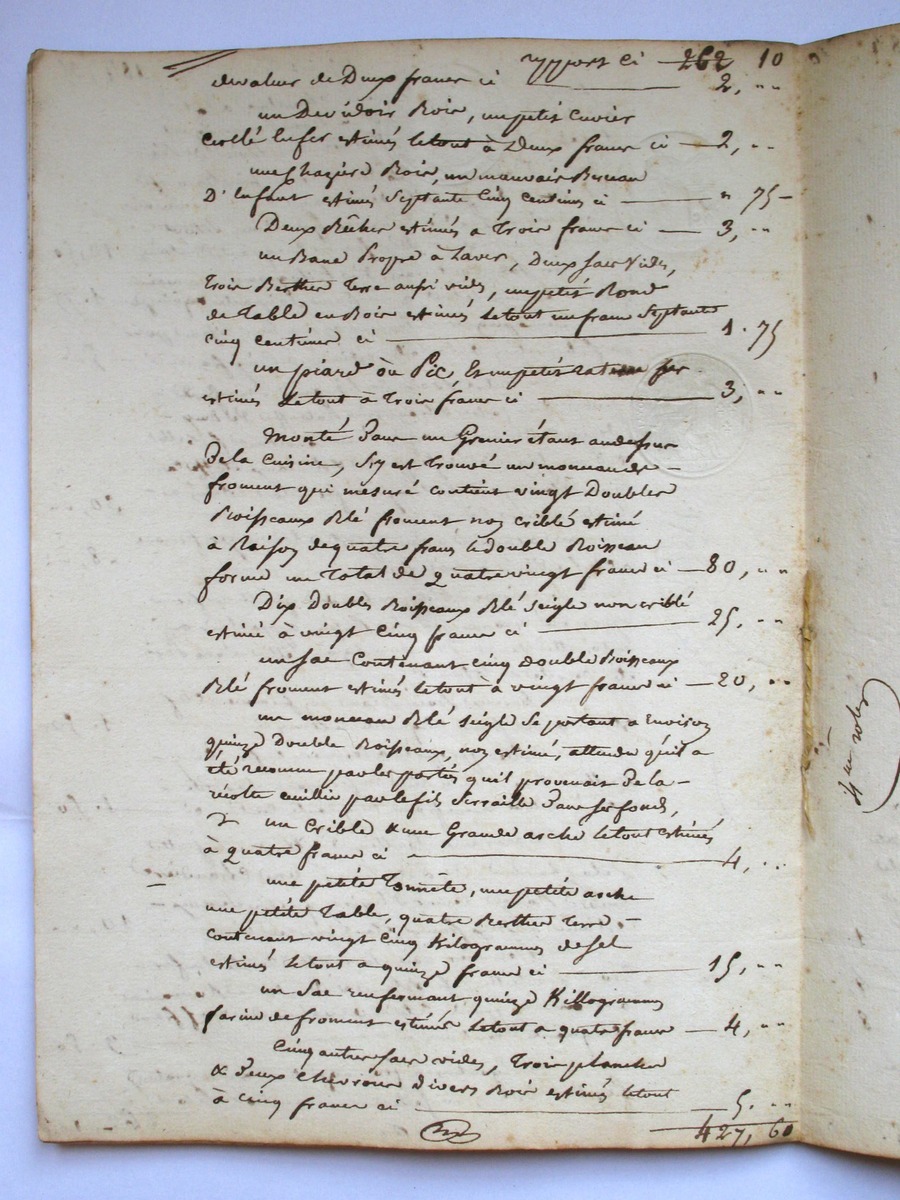 rapport ci 262 10
de valeur de Deux francs ci 2, "
un Devidoir Bois, un petit Cuvier
Cerclé en fer estimés le tout à Deux francs ci 2, "
Bois, un mauvais Berceau
D'Enfant estimés Septante Cinq Centimes ci " 75
Deux Bêches estimées a Trois francs ci 3, "
un Banc Propre à Laver, Deux sacs vides,
Trois Berthes Terre aussi vides, un petit Rond
de Table en Bois estimés le tout un franc Septante
cinq centimes ci 1. 75
un piard ou Pic, Et un petit fer
estimés le tout à Trois francs ci 3, "
Monté Dans un Grenier étant au dessus
De la Cuisine, s'y est Trouvé un monceau de
froment qui mesuré contient vingt Doubles
Boisseaux Blé froment non criblé estimé
à Raison de quatre francs le double Boisseau
forme un Total de quatre vingt francs ci 80, "
Dix Doubles Boisseaux Blé seigle non criblé
estimé à vingt Cinq francs ci 25, "
un sac Contenant Cinq double Boisseaux
Blé froment estimés le tout à vingt francs ci 20, "
un monceau Blé seigle se portant a Environ
quinze Double Boisseaux, non estimé, attendu qu'il a
été reconnu par les partés qu'il provenait De la
récolte cueillie par le fils Serraille Dans ses fonds,
un Crible & une Grande arche le tout estimés
à quatre francs ci 4, "
une petite Tonnete, une petite arche
une petite Table, quatre Berthes Terre
contenant vingt Cinq Kilogrammes de sel
estimés le tout a quinze francs ci 15, "
un Sac renfermant quinze Killogrammes
farine de froment estimés le tout a quatre francs 4, "
Cinq autres sacs vides, Trois planches
& Deux Chevrons Divers Bois estimés le tout
à cinq francs ci 5. "
427, 60